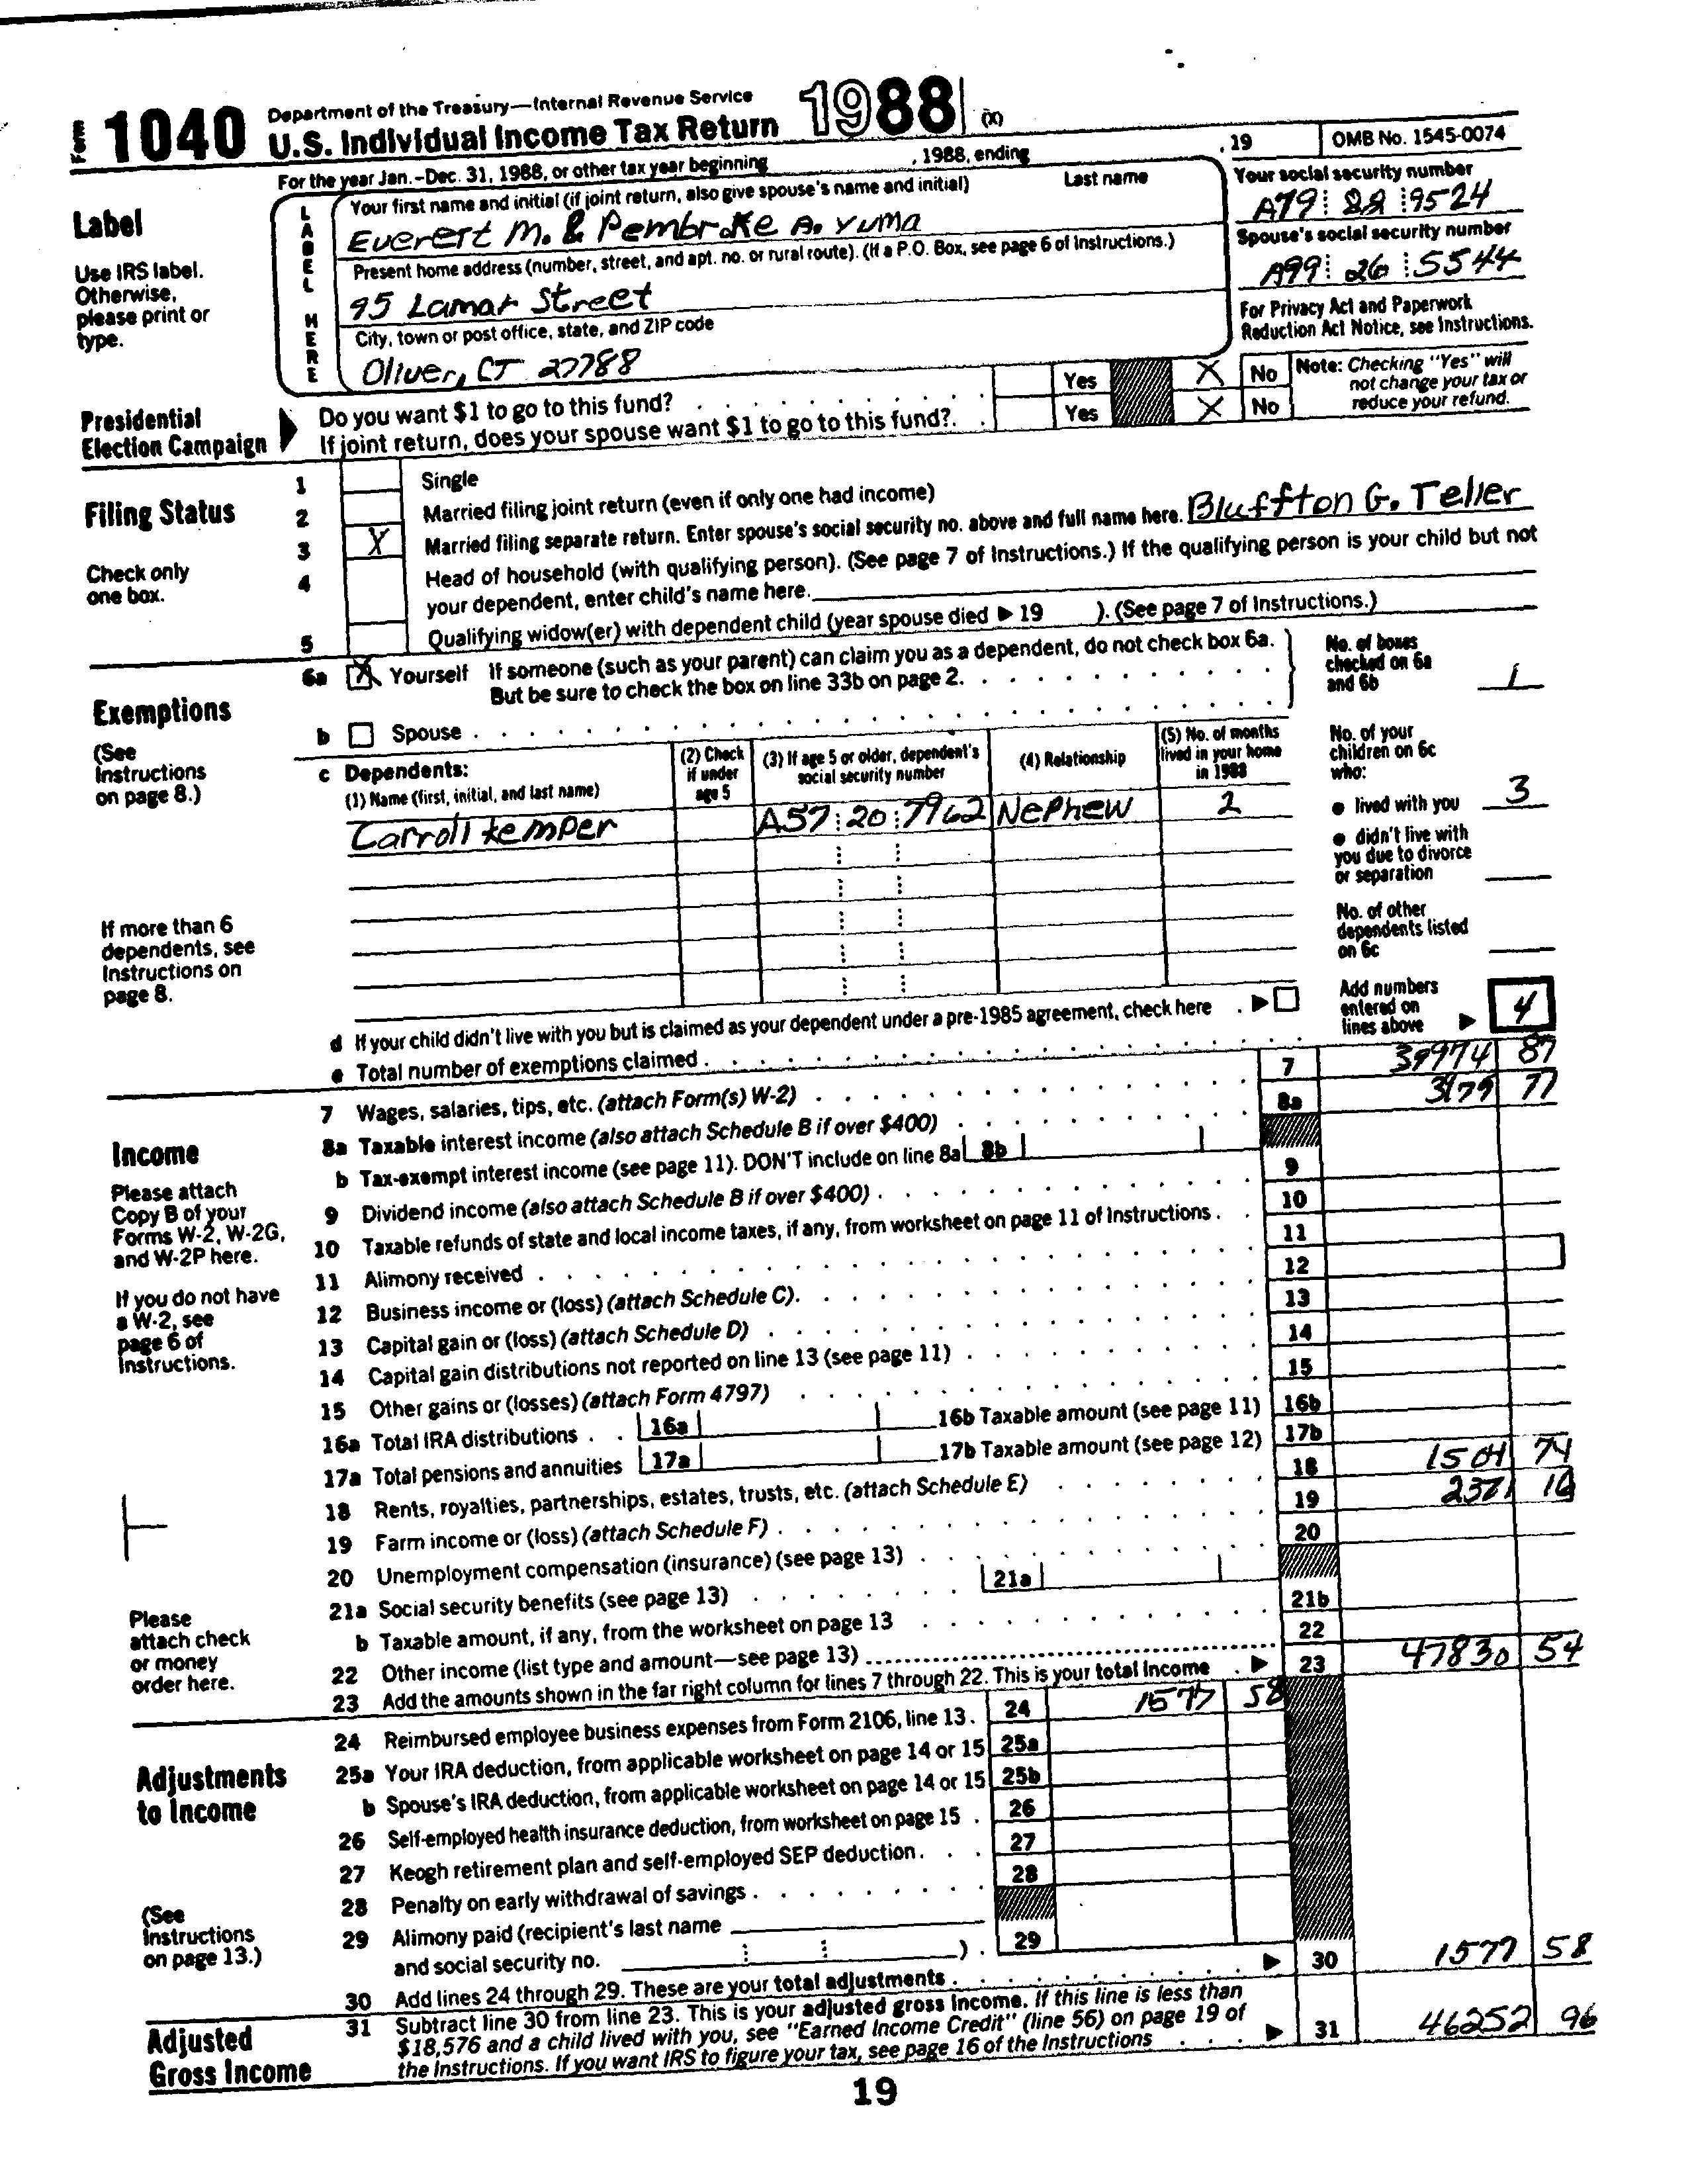 Form 1040 Department of the Treasury—Internal Revenue Service
U.S. Individual Income Tax Return 1988 (X)
For the year Jan.–Dec. 31, 1988, or other tax year beginning , 1988, ending , 19 OMB No. 1545-0074
Label
Use IRS label.
Otherwise,
please print or
type.
LABEL HERE
Your first name and initial (if joint return, also give spouse's name and initial) Last name
Everett M. & Pembroke A. Yuma
Your social security number
A79 88 9524
Present home address (number, street, and apt. no. or rural route). (If a P.O. Box, see page 6 of Instructions.)
95 Lamar Street
Spouse's social security number
A99 26 5544
City, town or post office, state, and ZIP code
Oliver, CT 27788
For Privacy Act and Paperwork
Reduction Act Notice, see Instructions.
Presidential
Election Campaign
Do you want $1 to go to this fund? Yes X No
If joint return, does your spouse want $1 to go to this fund? Yes X No
Note: Checking "Yes" will
not change your tax or
reduce your refund.
Filing Status
Check only
one box.
1 Single
2 Married filing joint return (even if only one had income)
3 X Married filing separate return. Enter spouse's social security no. above and full name here. Bluffton G. Teller
4 Head of household (with qualifying person). (See page 7 of Instructions.) If the qualifying person is your child but not
your dependent, enter child's name here.
5 Qualifying widow(er) with dependent child (year spouse died ▶ 19 ). (See page 7 of Instructions.)
Exemptions
(See
Instructions
on page 8.)
6a X Yourself If someone (such as your parent) can claim you as a dependent, do not check box 6a.
But be sure to check the box on line 33b on page 2.
b Spouse
No. of boxes
checked on 6a
and 6b 1
c Dependents:
(1) Name (first, initial, and last name)
(2) Check
if under
age 5
(3) If age 5 or older, dependent's
social security number
(4) Relationship
(5) No. of months
lived in your home
in 1988
Carroll Kemper A57 20 7962 Nephew 2
No. of your
children on 6c
who:
● lived with you 3
● didn't live with
you due to divorce
or separation
No. of other
dependents listed
on 6c
If more than 6
dependents, see
Instructions on
page 8.
d If your child didn't live with you but is claimed as your dependent under a pre-1985 agreement, check here ▶
e Total number of exemptions claimed
Add numbers
entered on
lines above ▶ 4
Income
Please attach
Copy B of your
Forms W-2, W-2G,
and W-2P here.
If you do not have
a W-2, see
page 6 of
Instructions.
Please
attach check
or money
order here.
7 Wages, salaries, tips, etc. (attach Form(s) W-2) 7 39974 87
8a Taxable interest income (also attach Schedule B if over $400) 8a 3179 77
b Tax-exempt interest income (see page 11). DON'T include on line 8a 8b
9 Dividend income (also attach Schedule B if over $400) 9
10 Taxable refunds of state and local income taxes, if any, from worksheet on page 11 of Instructions 10
11 Alimony received 11
12 Business income or (loss) (attach Schedule C) 12
13 Capital gain or (loss) (attach Schedule D) 13
14 Capital gain distributions not reported on line 13 (see page 11) 14
15 Other gains or (losses) (attach Form 4797) 15
16a Total IRA distributions 16a 16b Taxable amount (see page 11) 16b
17a Total pensions and annuities 17a 17b Taxable amount (see page 12) 17b
18 Rents, royalties, partnerships, estates, trusts, etc. (attach Schedule E) 18 1504 74
19 Farm income or (loss) (attach Schedule F) 19 2371 16
20 Unemployment compensation (insurance) (see page 13) 20
21a Social security benefits (see page 13) 21a
b Taxable amount, if any, from the worksheet on page 13 21b
22 Other income (list type and amount—see page 13) 22
23 Add the amounts shown in the far right column for lines 7 through 22. This is your total income ▶ 23 47830 54
Adjustments
to Income
(See
Instructions
on page 13.)
24 Reimbursed employee business expenses from Form 2106, line 13. 24 1577 58
25a Your IRA deduction, from applicable worksheet on page 14 or 15 25a
b Spouse's IRA deduction, from applicable worksheet on page 14 or 15 25b
26 Self-employed health insurance deduction, from worksheet on page 15 26
27 Keogh retirement plan and self-employed SEP deduction 27
28 Penalty on early withdrawal of savings 28
29 Alimony paid (recipient's last name
and social security no. ) 29
30 Add lines 24 through 29. These are your total adjustments ▶ 30 1577 58
Adjusted
Gross Income
31 Subtract line 30 from line 23. This is your adjusted gross income. If this line is less than
$18,576 and a child lived with you, see "Earned Income Credit" (line 56) on page 19 of
the Instructions. If you want IRS to figure your tax, see page 16 of the Instructions ▶ 31 46252 96
19